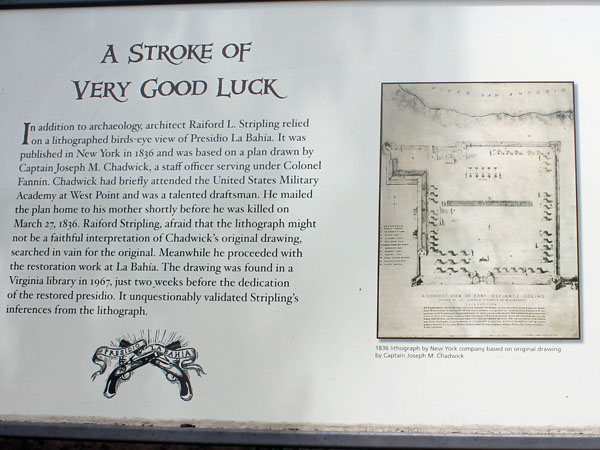 A STROKE OF
VERY GOOD LUCK
In addition to archaeology, architect Raiford L. Stripling relied
on a lithographed birds-eye view of Presidio La Bahía. It was
published in New York in 1836 and was based on a plan drawn by
Captain Joseph M. Chadwick, a staff officer serving under Colonel
Fannin. Chadwick had briefly attended the United States Military
Academy at West Point and was a talented draftsman. He mailed
the plan home to his mother shortly before he was killed on
March 27, 1836. Raiford Stripling, afraid that the lithograph might
not be a faithful interpretation of Chadwick's original drawing,
searched in vain for the original. Meanwhile he proceeded with
the restoration work at La Bahía. The drawing was found in a
Virginia library in 1967, just two weeks before the dedication
of the restored presidio. It unquestionably validated Stripling's
inferences from the lithograph.
PRESIDIO LA BAHIA
RIVER SAN ANTONIO
A CORRECT VIEW OF FORT DEFIANCE GOLIAD
1836 lithograph by New York company based on original drawing
by Captain Joseph M. Chadwick.